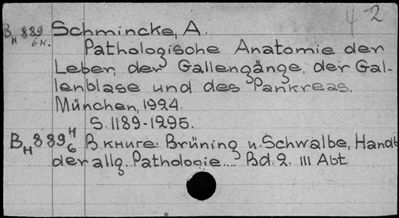 4-2
Bн889 6н. Schmincke, A.
Pathologische Anatomie der
Leber, der Gallengänge, der Gal-
lenblase und des Pankreas.
München, 1924.
S. 1189-1295.
Bн889 4/6 В книге: Brüning u. Schwalbe, Handb
der allg. Pathologie.... Bd. 2. III Abt.